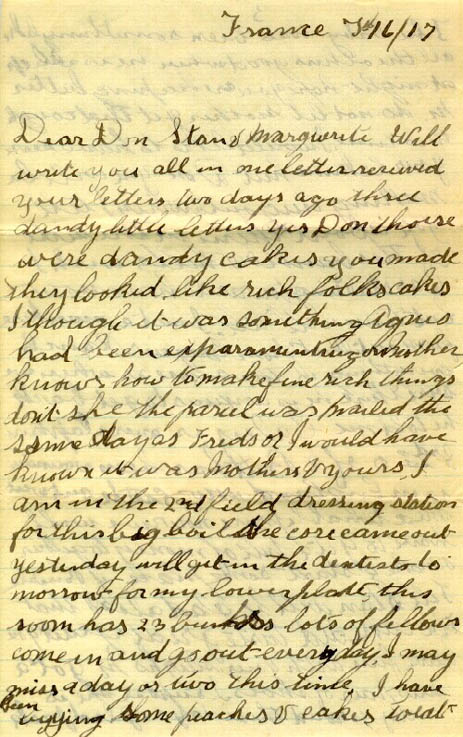 France Feb 16/17
Dear Don Stan & Marguerite Will
write you all in one letter received
your letters two days ago three
dandy little letters yes Don those
were dandy cakes you made
they looked like rich folks cakes
I though it was something Agnes
had been exparamenting on Mother
knows how to make fine rich things
don't she the parcel was mailed the
same day as Freds or I would have
known it was Mothers & yours, I
am in the 2nd field dressing station
for this big boil the core came out
yesterday will get in the dentists to
morrow for my lower plate, this
room has 23 bunks lots of fellows
come in and go out everyday, I may
miss a day or two this time, I have
been buying some peaches & cakes to eat